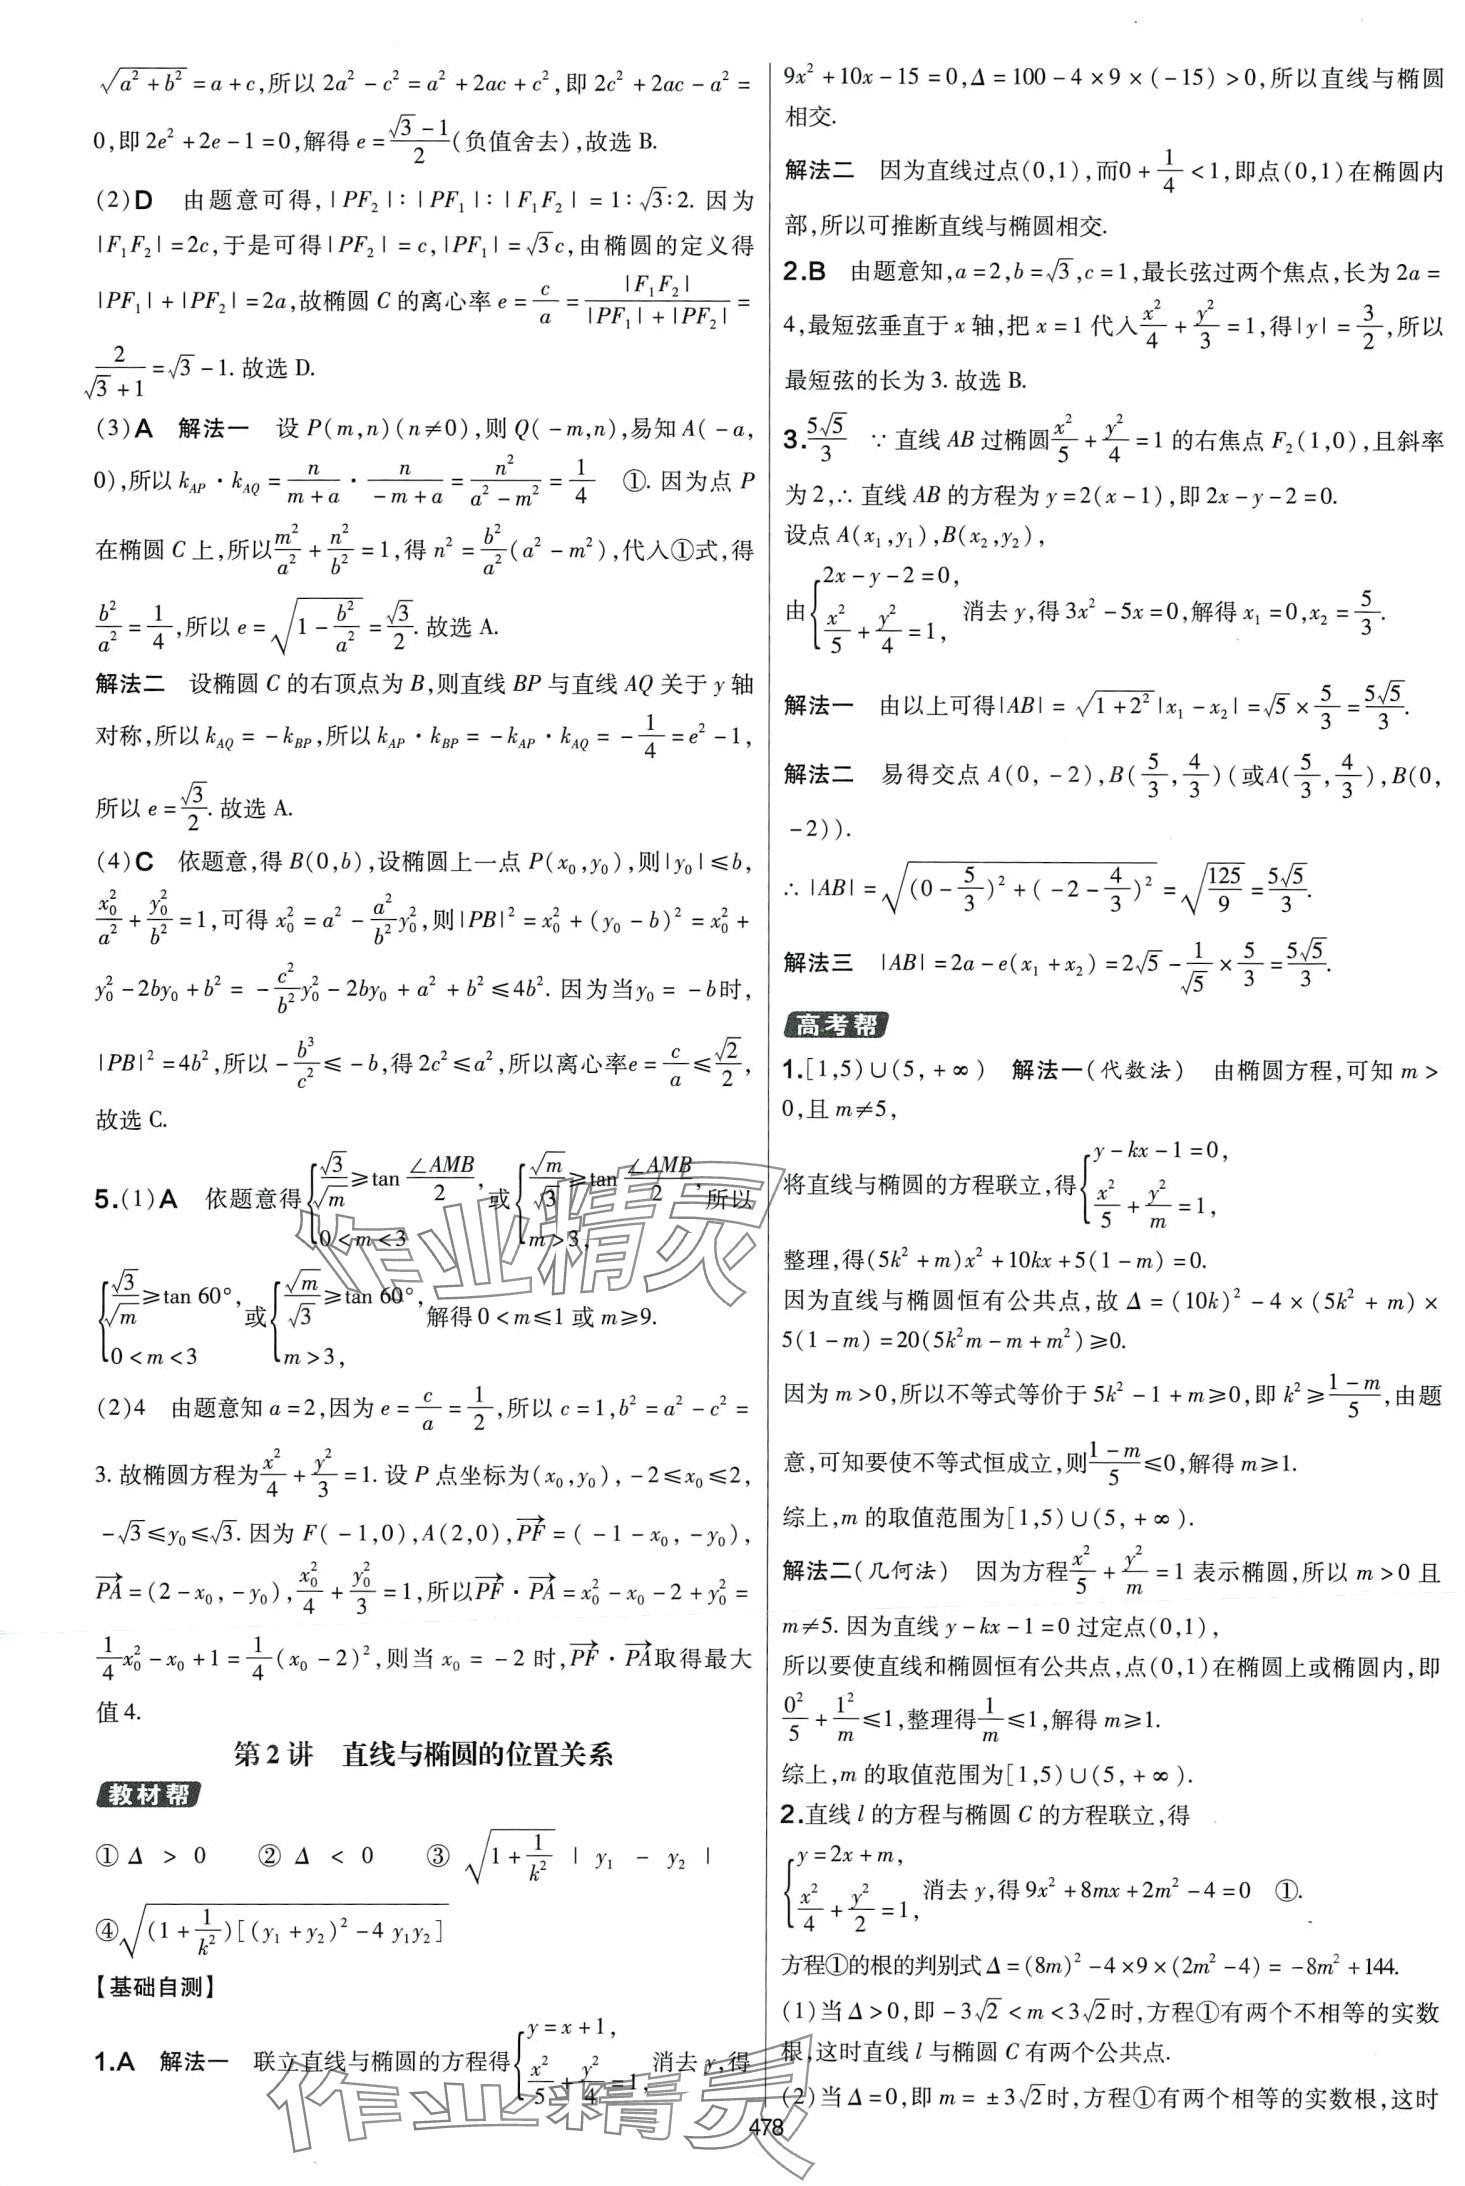 √(a²+b²)=a+c,所以2a²-c²=a²+2ac+c²,即2c²+2ac-a²=
0,即2e²+2e-1=0,解得e=(√3-1)/2(负值舍去),故选B.
(2)D 由题意可得,|PF₂|:|PF₁|:|F₁F₂|=1:√3:2.因为
|F₁F₂|=2c,于是可得|PF₂|=c,|PF₁|=√3c,由椭圆的定义得
|PF₁|+|PF₂|=2a,故椭圆C的离心率e=c/a=|F₁F₂|/(|PF₁|+|PF₂|)=
2/(√3+1)=√3-1.故选D.
(3)A 解法一 设P(m,n)(n≠0),则Q(-m,n),易知A(-a,
0),所以k_AP·k_AQ=n/(m+a)·n/(-m+a)=n²/(a²-m²)=1/4 ①.因为点P
在椭圆C上,所以m²/a²+n²/b²=1,得n²=b²/a²(a²-m²),代入①式,得
b²/a²=1/4,所以e=√(1-b²/a²)=√3/2.故选A.
解法二 设椭圆C的右顶点为B,则直线BP与直线AQ关于y轴
对称,所以k_AQ=-k_BP,所以k_AP·k_BP=-k_AP·k_AQ=-1/4=e²-1,
所以e=√3/2.故选A.
(4)C 依题意,得B(0,b),设椭圆上一点P(x₀,y₀),则|y₀|≤b,
x₀²/a²+y₀²/b²=1,可得x₀²=a²-a²/b²y₀²,则|PB|²=x₀²+(y₀-b)²=x₀²+
y₀²-2by₀+b²=-c²/b²y₀²-2by₀+a²+b²≤4b².因为当y₀=-b时,
|PB|²=4b²,所以-b³/c²≤-b,得2c²≤a²,所以离心率e=c/a≤√2/2,
故选C.
5.(1)A 依题意得{√3/√m≥tan ∠AMB/2, 0<m<3 或{√m/√3≥tan ∠AMB/2, m>3, 所以
{√3/√m≥tan 60°, 0<m<3 或{√m/√3≥tan 60°, m>3, 解得0<m≤1或m≥9.
(2)4 由题意知a=2,因为e=c/a=1/2,所以c=1,b²=a²-c²=
3.故椭圆方程为x²/4+y²/3=1.设P点坐标为(x₀,y₀),-2≤x₀≤2,
-√3≤y₀≤√3.因为F(-1,0),A(2,0),PF→=(-1-x₀,-y₀),
PA→=(2-x₀,-y₀),x₀²/4+y₀²/3=1,所以PF→·PA→=x₀²-x₀-2+y₀²=
1/4x₀²-x₀+1=1/4(x₀-2)²,则当x₀=-2时,PF→·PA→取得最大
值4.
第2讲 直线与椭圆的位置关系
教材帮
①Δ>0 ②Δ<0 ③√(1+1/k²)|y₁-y₂|
④√((1+1/k²)[(y₁+y₂)²-4y₁y₂])
【基础自测】
1.A 解法一 联立直线与椭圆的方程得{y=x+1, x²/5+y²/4=1, 消去y,得
9x²+10x-15=0,Δ=100-4×9×(-15)>0,所以直线与椭圆
相交.
解法二 因为直线过点(0,1),而0+1/4<1,即点(0,1)在椭圆内
部,所以可推断直线与椭圆相交.
2.B 由题意知,a=2,b=√3,c=1,最长弦过两个焦点,长为2a=
4,最短弦垂直于x轴,把x=1代入x²/4+y²/3=1,得|y|=3/2,所以
最短弦的长为3.故选B.
3.5√5/3 ∵直线AB过椭圆x²/5+y²/4=1的右焦点F₂(1,0),且斜率
为2,∴直线AB的方程为y=2(x-1),即2x-y-2=0.
设点A(x₁,y₁),B(x₂,y₂),
由{2x-y-2=0, x²/5+y²/4=1, 消去y,得3x²-5x=0,解得x₁=0,x₂=5/3.
解法一 由以上可得|AB|=√(1+2²)|x₁-x₂|=√5×5/3=5√5/3.
解法二 易得交点A(0,-2),B(5/3,4/3)(或A(5/3,4/3),B(0,
-2)).
∴|AB|=√((0-5/3)²+(-2-4/3)²)=√(125/9)=5√5/3.
解法三 |AB|=2a-e(x₁+x₂)=2√5-1/√5×5/3=5√5/3.
高考帮
1.[1,5)∪(5,+∞) 解法一(代数法) 由椭圆方程,可知m>
0,且m≠5,
将直线与椭圆的方程联立,得{y-kx-1=0, x²/5+y²/m=1,
整理,得(5k²+m)x²+10kx+5(1-m)=0.
因为直线与椭圆恒有公共点,故Δ=(10k)²-4×(5k²+m)×
5(1-m)=20(5k²m-m+m²)≥0.
因为m>0,所以不等式等价于5k²-1+m≥0,即k²≥(1-m)/5,由题
意,可知要使不等式恒成立,则(1-m)/5≤0,解得m≥1.
综上,m的取值范围为[1,5)∪(5,+∞).
解法二(几何法) 因为方程x²/5+y²/m=1表示椭圆,所以m>0且
m≠5.因为直线y-kx-1=0过定点(0,1),
所以要使直线和椭圆恒有公共点,点(0,1)在椭圆上或椭圆内,即
0²/5+1²/m≤1,整理得1/m≤1,解得m≥1.
综上,m的取值范围为[1,5)∪(5,+∞).
2.直线l的方程与椭圆C的方程联立,得
{y=2x+m, x²/4+y²/2=1, 消去y,得9x²+8mx+2m²-4=0 ①.
方程①的根的判别式Δ=(8m)²-4×9×(2m²-4)=-8m²+144.
(1)当Δ>0,即-3√2<m<3√2时,方程①有两个不相等的实数
根,这时直线l与椭圆C有两个公共点.
(2)当Δ=0,即m=±3√2时,方程①有两个相等的实数根,这时
478
作业精灵
作业精灵